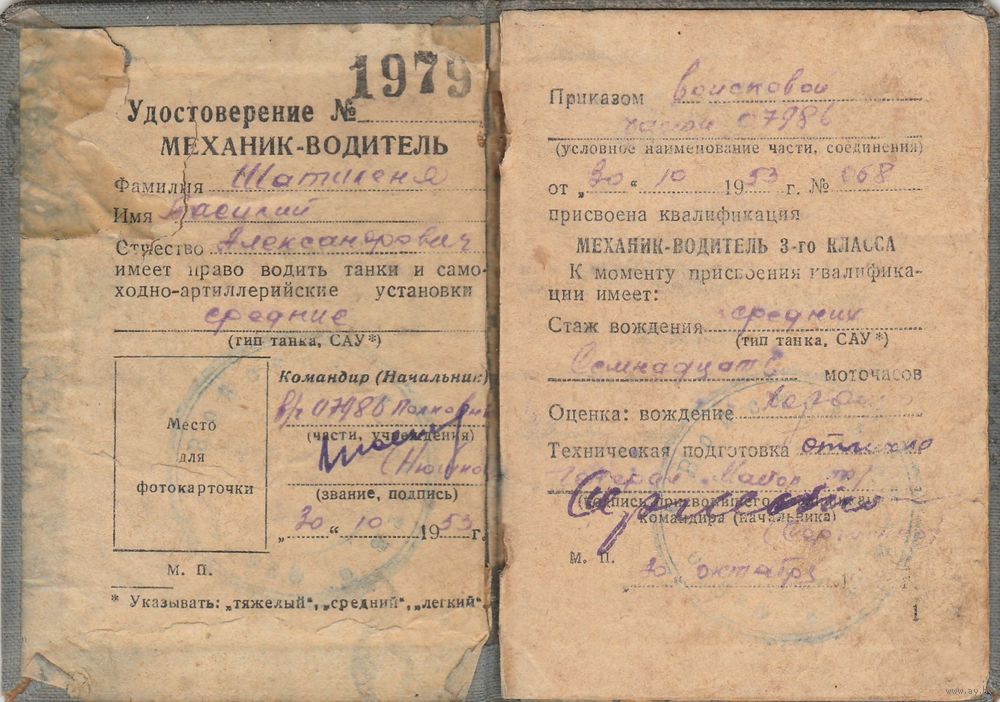 1979
Удостоверение №
МЕХАНИК-ВОДИТЕЛЬ
Фамилия Шатиленя
Имя Василий
Отчество Александрович
имеет право водить танки и само-
ходно-артиллерийские установки
средние
(тип танка, САУ*)
Место
для
фотокарточки
М. П.
Командир (Начальник)
в/ч 07986 Полковник
(части, учреждения)
(звание, подпись)
„30“ 10 1953 г.
* Указывать: „тяжелый“, „средний“, „легкий“
Приказом войсковой
части 07986
(условное наименование части, соединения)
от „30“ 10 1953 г. № 068
присвоена квалификация
МЕХАНИК-ВОДИТЕЛЬ 3-го КЛАССА
К моменту присвоения квалифика-
ции имеет:
Стаж вождения средних
(тип танка, САУ*)
Семнадцать моточасов
Оценка: вождение
Техническая подготовка отлично
Майор
(подпись присвоившего
командира (начальника)
М. П.
„30“ октября
1
www.ay.by